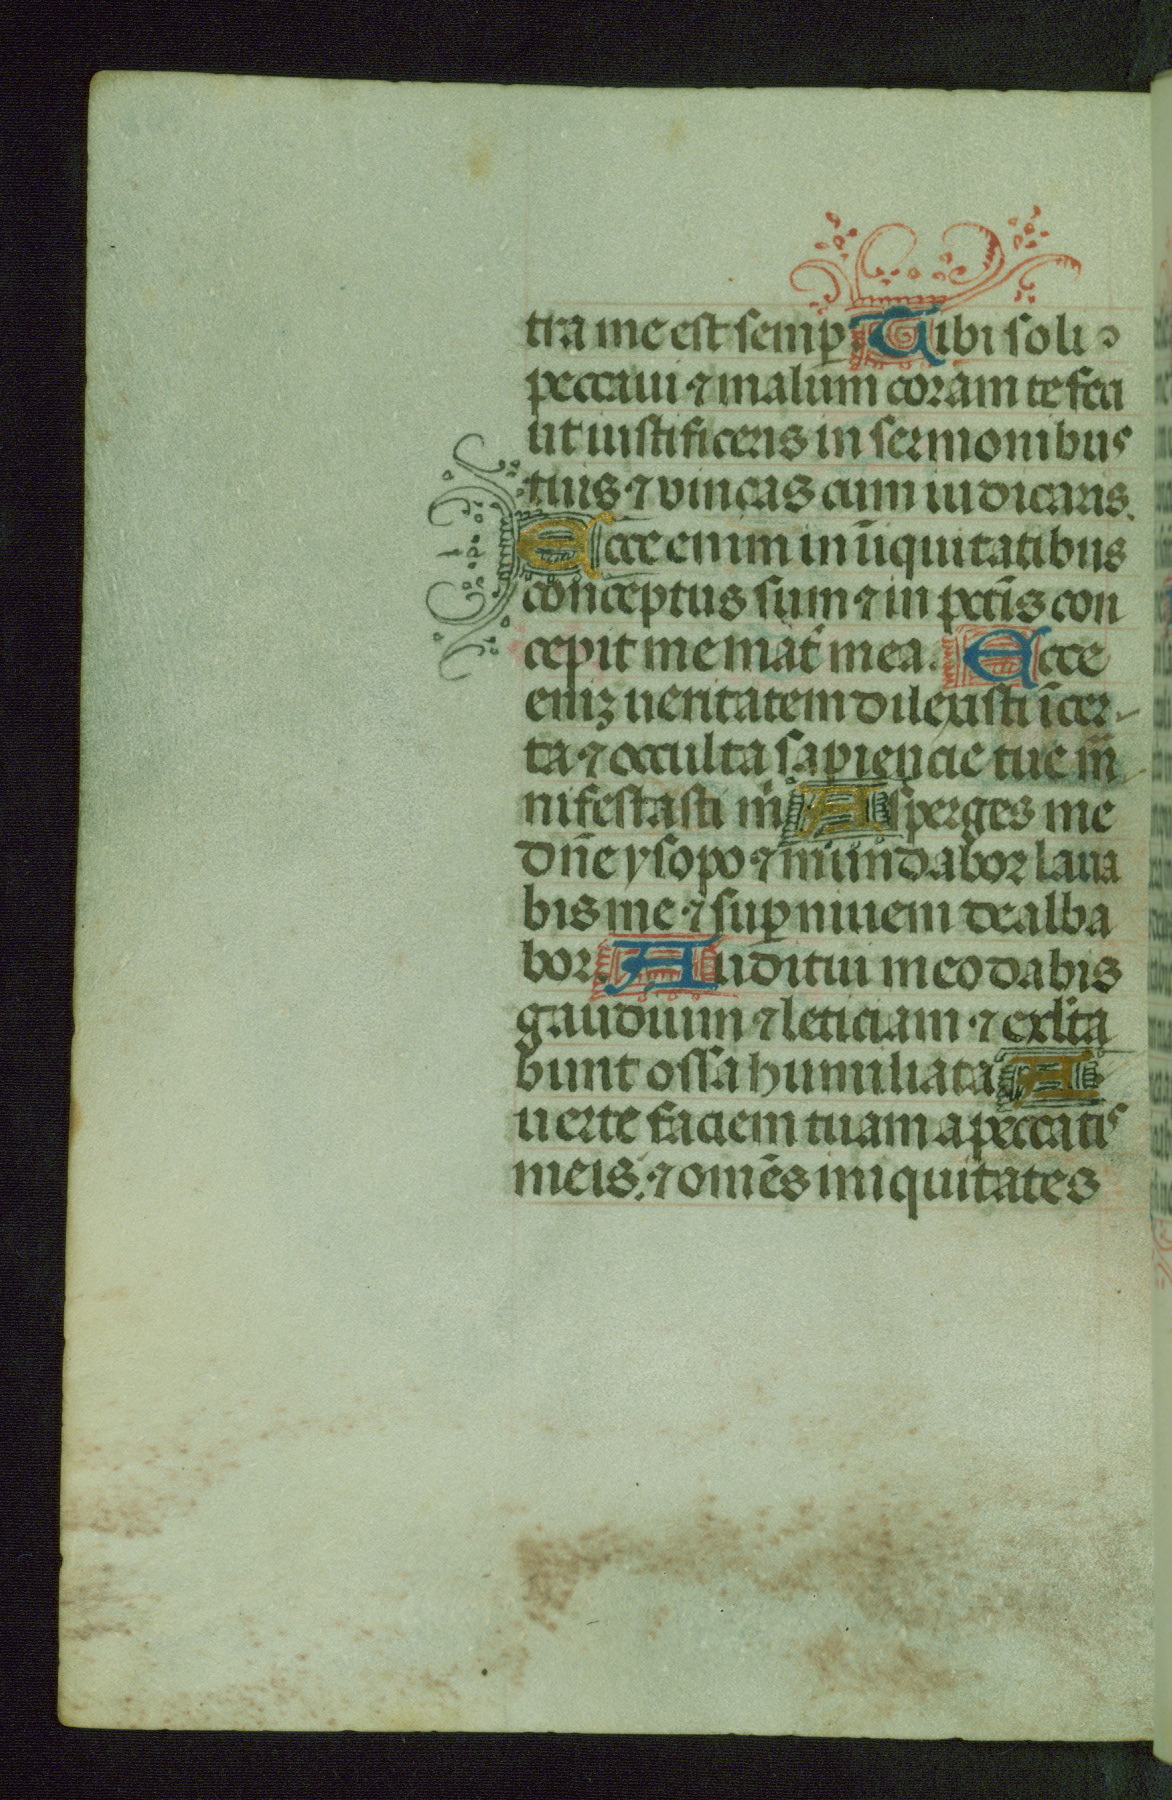 tra me est semp̱ Tibi soli
peccaui ⁊ malum coram te feci
ut iustificeris in sermonibus
tuis ⁊ vincas cum iudicaris.
Ecce enim in iīquitatibus
conceptus sum ⁊ in pctīs con
cepit me mat̄ mea. Ecce
enіꝫ ueritatem dilexisti īcer-
ta ⁊ occulta sapiencie tue m̄
nifestasti m̄ Asperges me
dn̄e ysopo ⁊ mundabor laua
bis me ⁊ sup̱ niuem dealba
bor. Auditui meo dabis
gaudium ⁊ leticiam ⁊ exl̄ta
bunt ossa humiliata A
uerte faciem tuam a peccatis
meis. ⁊ omēs iniquitates